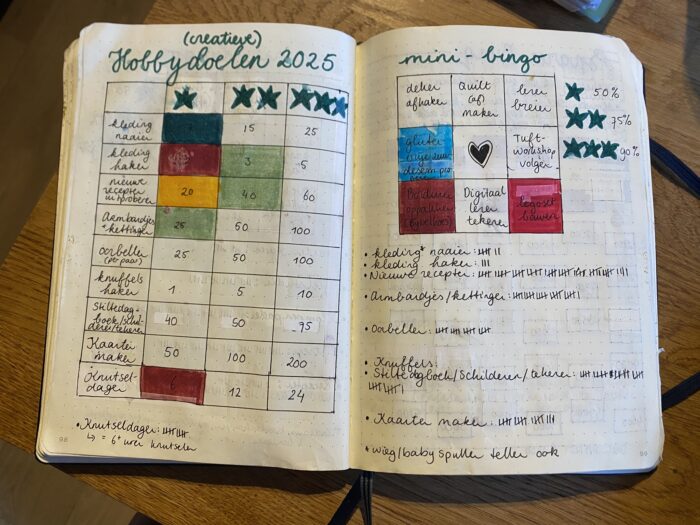 (creatieve)
Hobbydoelen 2025
kleding naaien
15
25
kleding haken
3
5
nieuwe recepten uitproberen
20
40
60
Armbandjes + kettingen
25
50
100
oorbellen (per paar)
25
50
100
knuffels haken
1
5
10
Stiltedag-boek/schilderen/tekenen
40
50
75
Kaarten maken
50
100
200
Knutsel-dagen
6
12
24
• Knutseldagen:
↳ = 6+ uren knutselen
98
mini - bingo
deken afhaken
Quilt (af) maken
leren breien
Tuft-workshop volgen
Digitaal leren tekenen
legoset bouwen
50%
75%
90%
• kleding* naaien:
• kleding haken:
• Nieuwe recepten:
• Armbandjes/kettingen:
• Oorbellen:
• Knuffels:
• Stiltedagboek/Schilderen/tekenen:
• Kaarten maken:
* wieg/babyspullen tellen ook
99